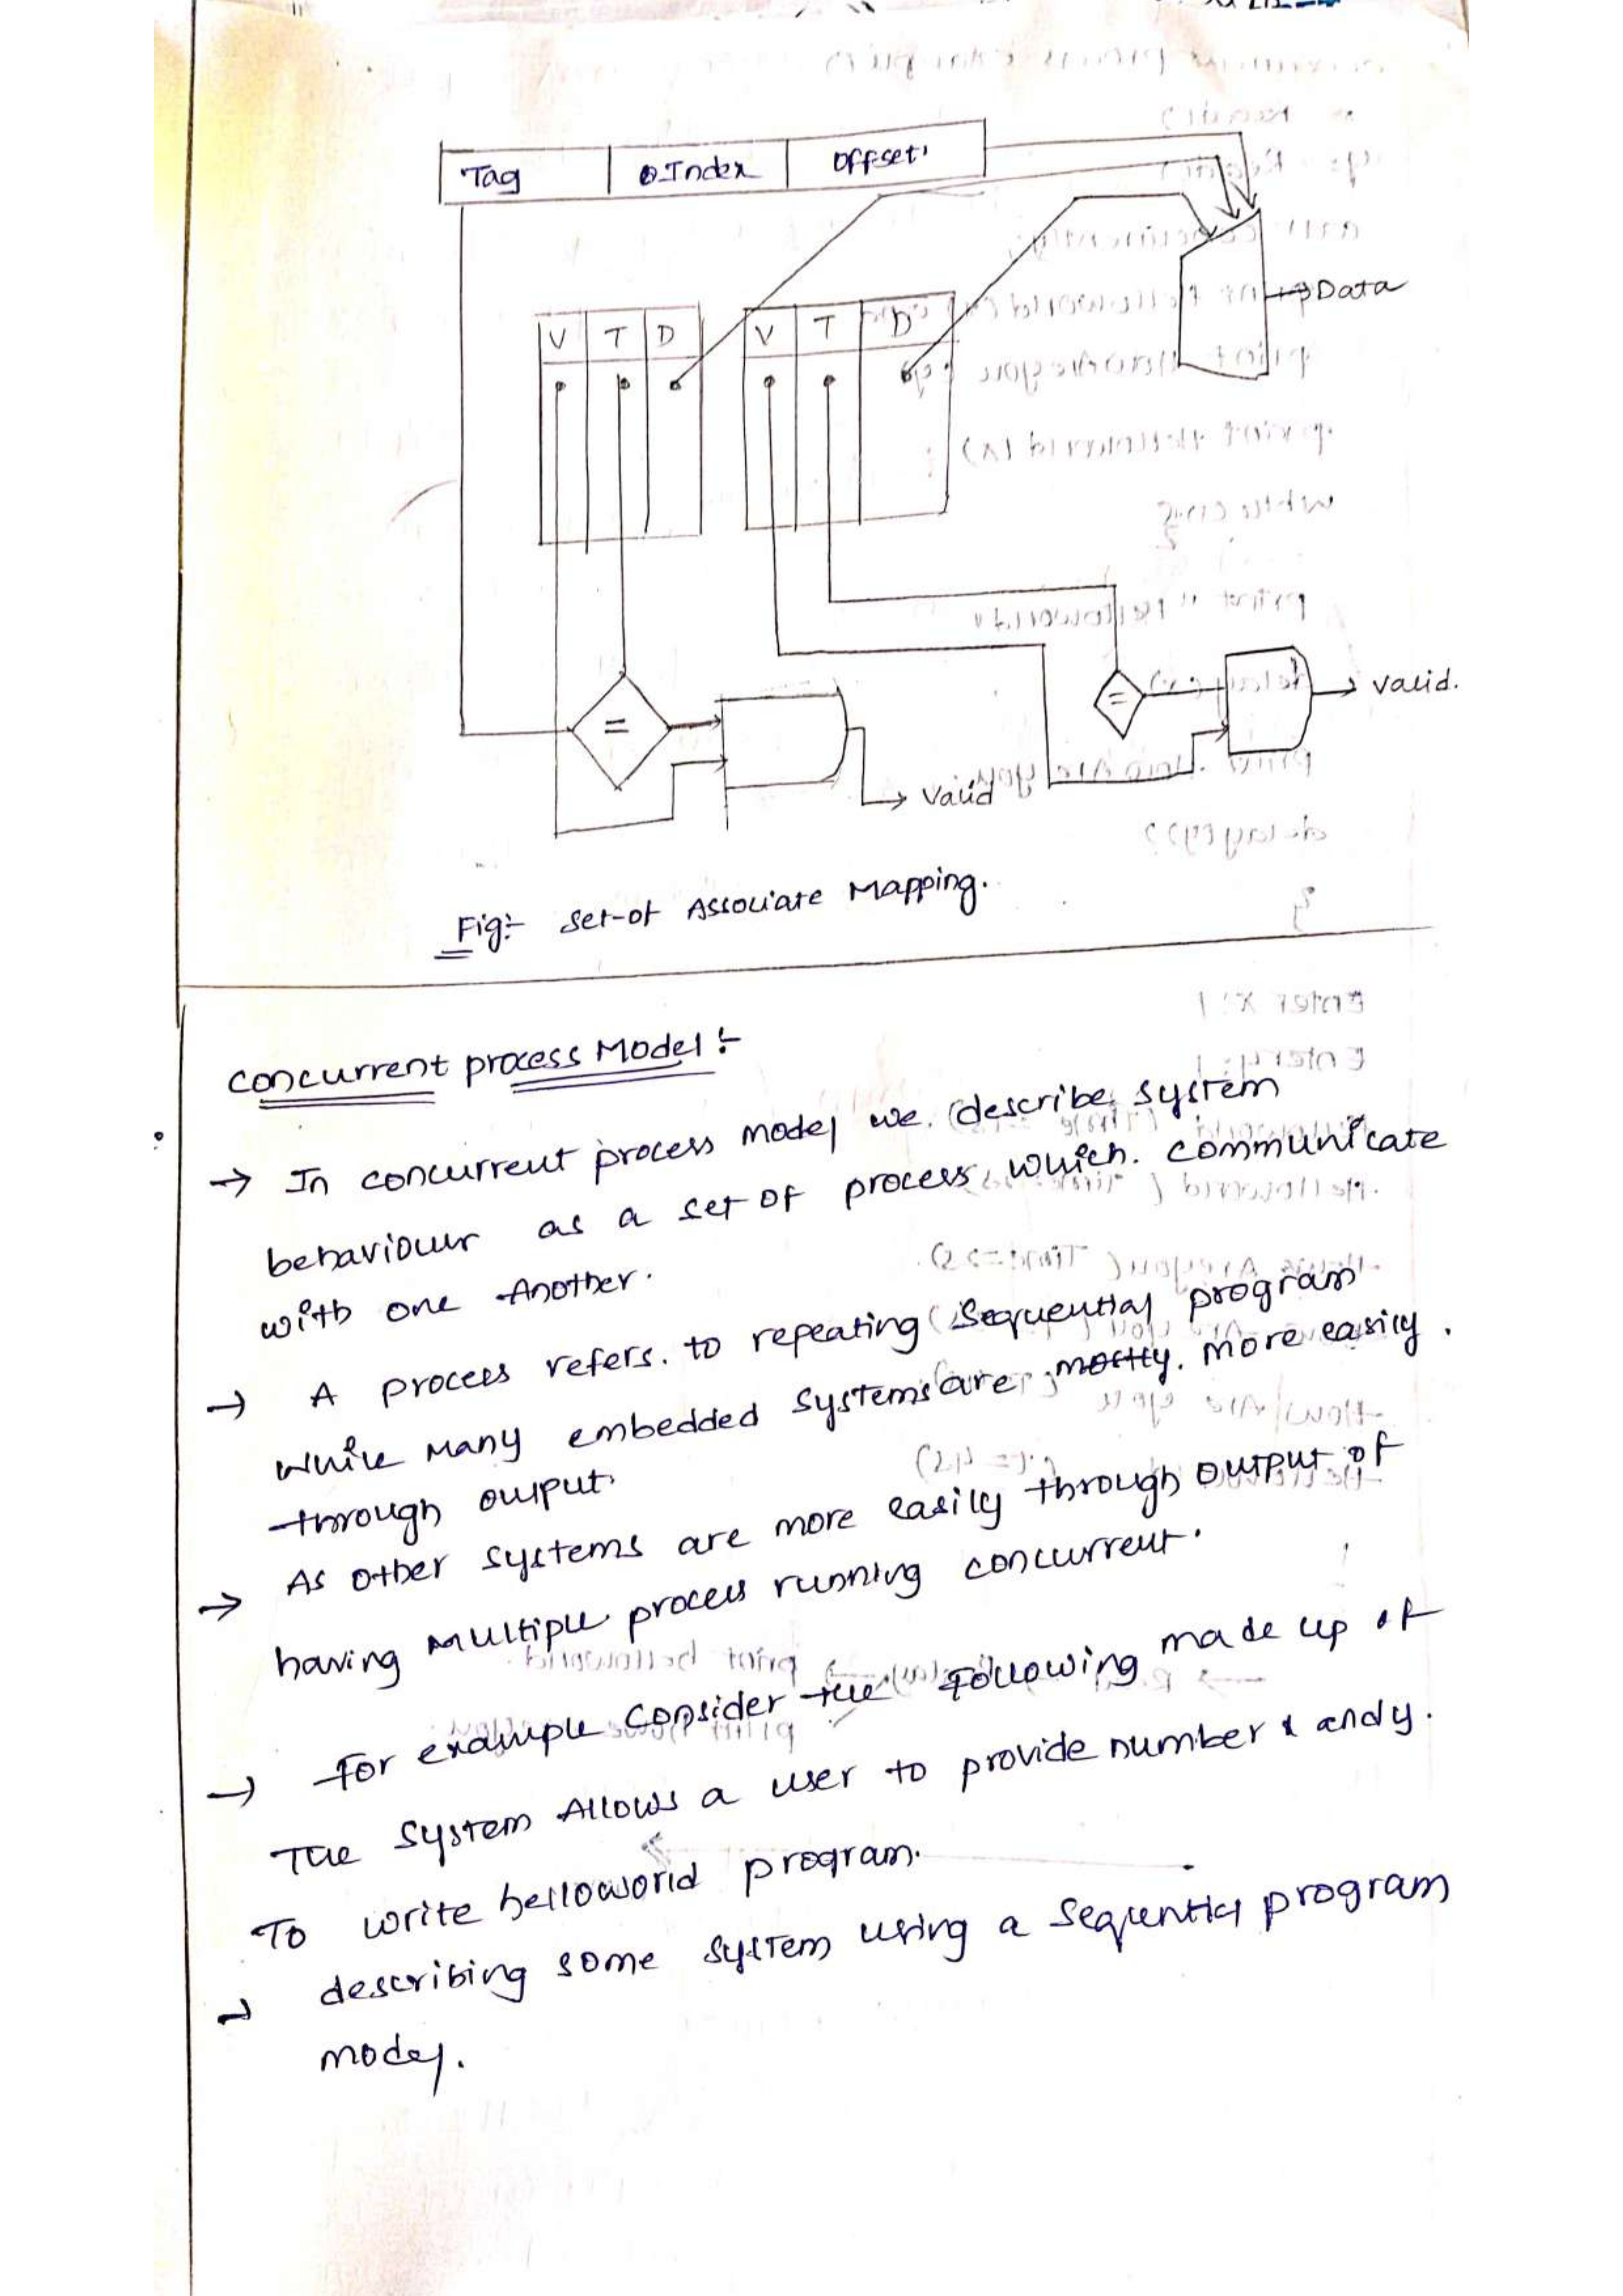 Tag Index Offset
V T D V T D
Data
= =
valid.
valid
Fig:- Set-of Associate Mapping.
Concurrent process Model :-
→ In concurrent process model we describe system
behaviour as a set of process, which. communicate
with one Another.
→ A process refers. to repeating Sequential program
while Many embedded systems are mostly. more easily.
through output.
→ As other systems are more easily through output of
having Multiple process running concurrent.
→ for example consider the following made up of
The System Allows a user to provide number x and y.
To write helloworld program.
→ describing some system using a sequential program
model.